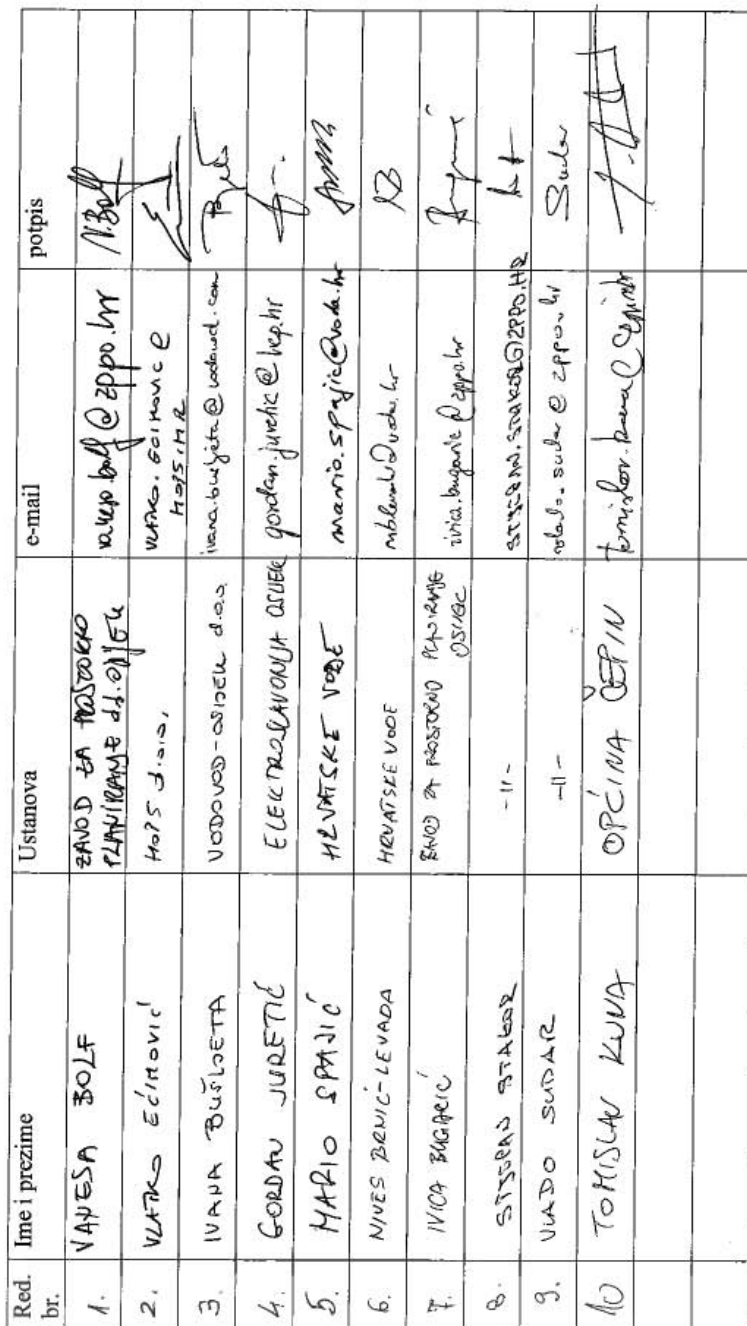 Red. br. Ime i prezime Ustanova e-mail potpis
1. VANESA BOLF ZAVOD ZA PROSTORNO PLANIRANJE vanesa.bolf@zppo.hr V.Bolf
2. VLATKO EĆIMOVIĆ HOPS d.o.o. HOPS.HR
3. IVANA BUŠLJETA VODOVOD-OSIJEK d.o.o. ivana.busljeta@vodovod.com
4. GORDAN JURETIĆ ELEKTROSLAVONIJA OSIJEK gordan.juretic@hep.hr
5. MARIO SPAJIĆ HRVATSKE VODE mario.spajic@voda.hr
6. NIVES BRNIĆ-LEVADA HRVATSKE VODE
7. IVICA BUGARIĆ ZAVOD ZA PROSTORNO PLANIRANJE OSIJEK ivica.bugaric@zppo.hr
8. STJEPAN STAKOR -11- STJEPAN.STAKOR@ZPPO.HR
9. VLADO SUDAR -11- vlado.sudar@zppo.hr Sudar
10 TOMISLAV KUNA OPĆINA ČEPIN